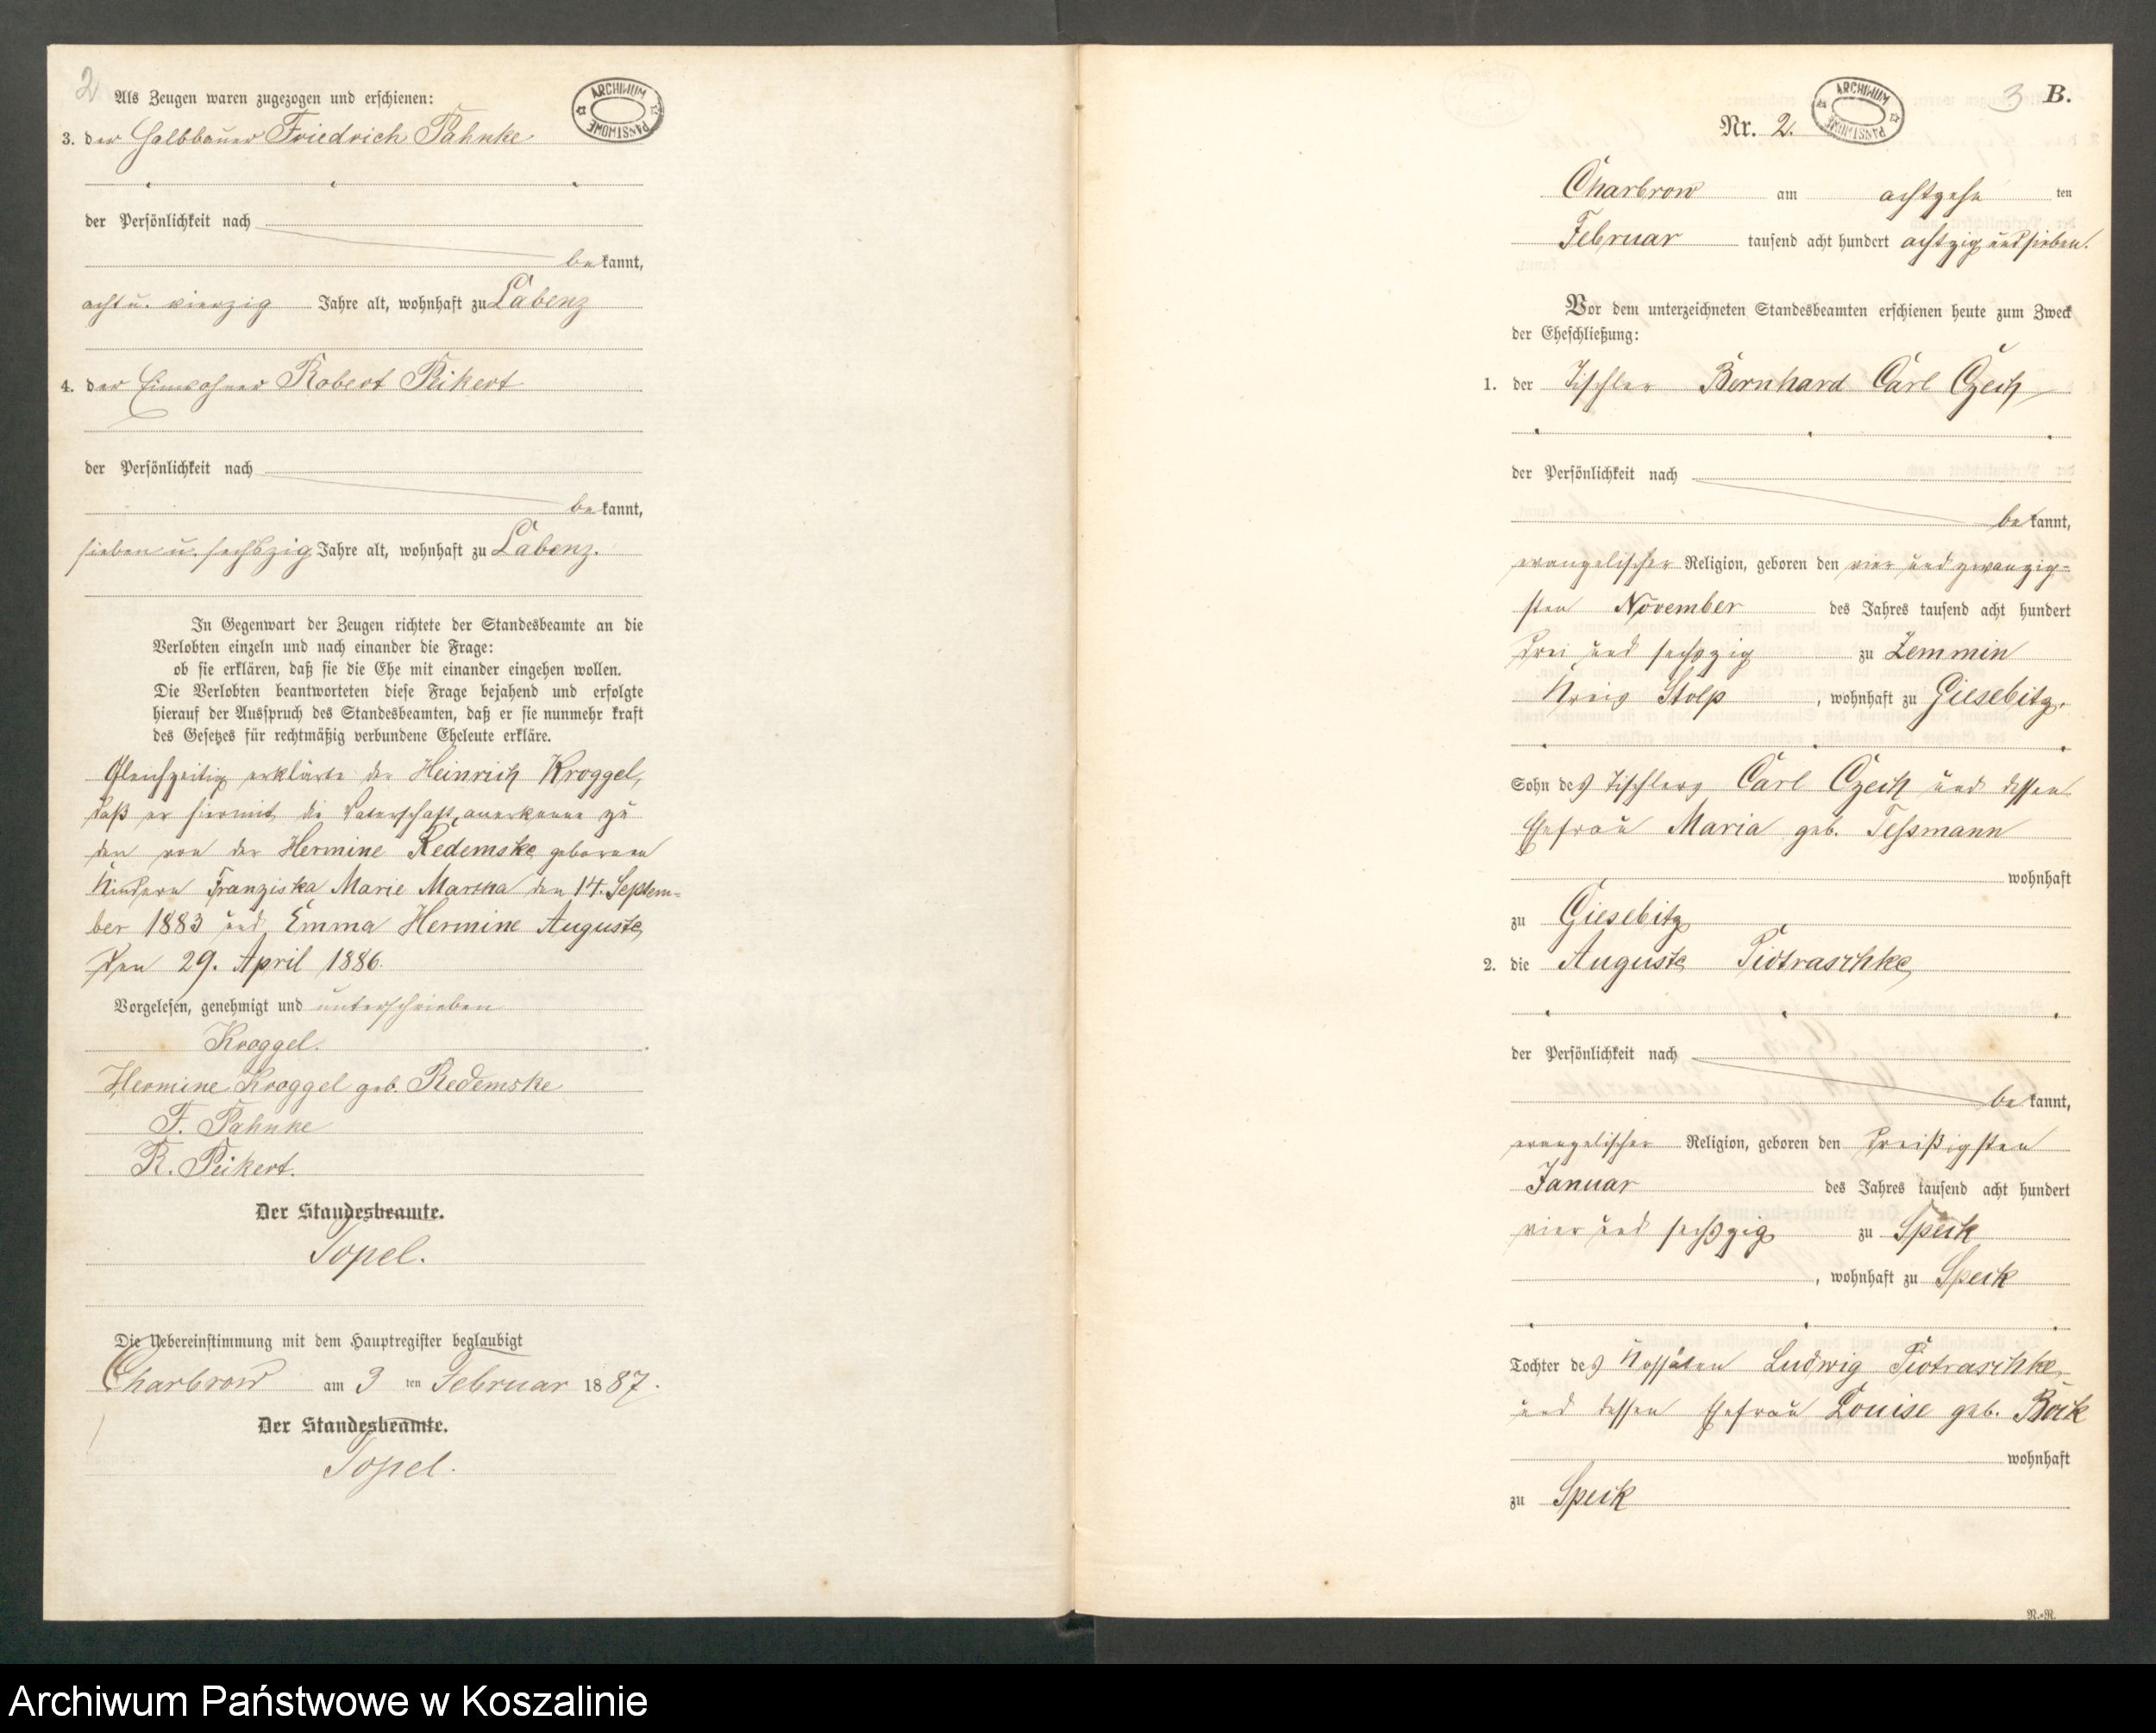 2
Als Zeugen waren zugezogen und erschienen:
ARCHIWUM PAŃSTWOWE
3. der Halbbauer Friedrich Pahnke
der Persönlichkeit nach
bekannt,
acht u. vierzig Jahre alt, wohnhaft zu Labenz
4. der Einwohner Robert Peikert
der Persönlichkeit nach
bekannt,
sieben u. sechszig Jahre alt, wohnhaft zu Labenz.
In Gegenwart der Zeugen richtete der Standesbeamte an die
Verlobten einzeln und nach einander die Frage:
ob sie erklären, daß sie die Ehe mit einander eingehen wollen.
Die Verlobten beantworteten diese Frage bejahend und erfolgte
hierauf der Ausspruch des Standesbeamten, daß er sie nunmehr kraft
des Gesetzes für rechtmäßig verbundene Eheleute erkläre.
Gleichzeitig erklärte der Heinrich Kroggel,
daß er hiermit die Vaterschaft anerkenne zu
den von der Hermine Redemske geborenen
Kindern Franziska Marie Martha den 14. Septem=
ber 1883 und Emma Hermine Auguste,
den 29. April 1886.
Vorgelesen, genehmigt und unterschrieben
Kroggel.
Hermine Kroggel geb. Redemske
F. Pahnke
R. Peikert.
Der Standesbeamte.
Topel.
Die Uebereinstimmung mit dem Hauptregister beglaubigt
Charbrow am 3 ten Februar 1887.
Der Standesbeamte.
Topel.
3 B.
ARCHIWUM PAŃSTWOWE
Nr. 2.
Charbrow am achtzehn ten
Februar tausend acht hundert achtzig und sieben.
Vor dem unterzeichneten Standesbeamten erschienen heute zum Zweck
der Eheschließung:
1. der Tischler Bernhard Carl Czech
der Persönlichkeit nach
bekannt,
evangelischer Religion, geboren den vier und zwanzig=
sten November des Jahres tausend acht hundert
drei und sechszig zu Zemmin
Kreis Stolp, wohnhaft zu Giesebitz.
Sohn des Tischlers Carl Czech und dessen
Ehefrau Maria geb. Tessmann
wohnhaft
zu Giesebitz
2. die Auguste Piotraschke,
der Persönlichkeit nach
bekannt,
evangelischer Religion, geboren den dreißigsten
Januar des Jahres tausend acht hundert
vier und sechszig zu Speck
, wohnhaft zu Speck
Tochter des Kossäten Ludwig Piotraschke,
und dessen Ehefrau Louise geb. Bock
wohnhaft
zu Speck
N.-R.
Archiwum Państwowe w Koszalinie